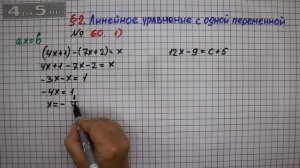 §2. Линейное уравнение с одной переменной
№ 60 1)
ax=b
(4x+1)-(7x+2)=x
4x+1-7x-2=x
-3x-x=1
-4x=1
x=-
12x-9=c+5